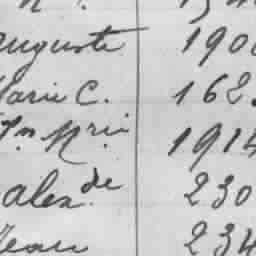 auguste 190
Marie C. 162
Jn Mrie 1914
alexdre 230
Jean 234